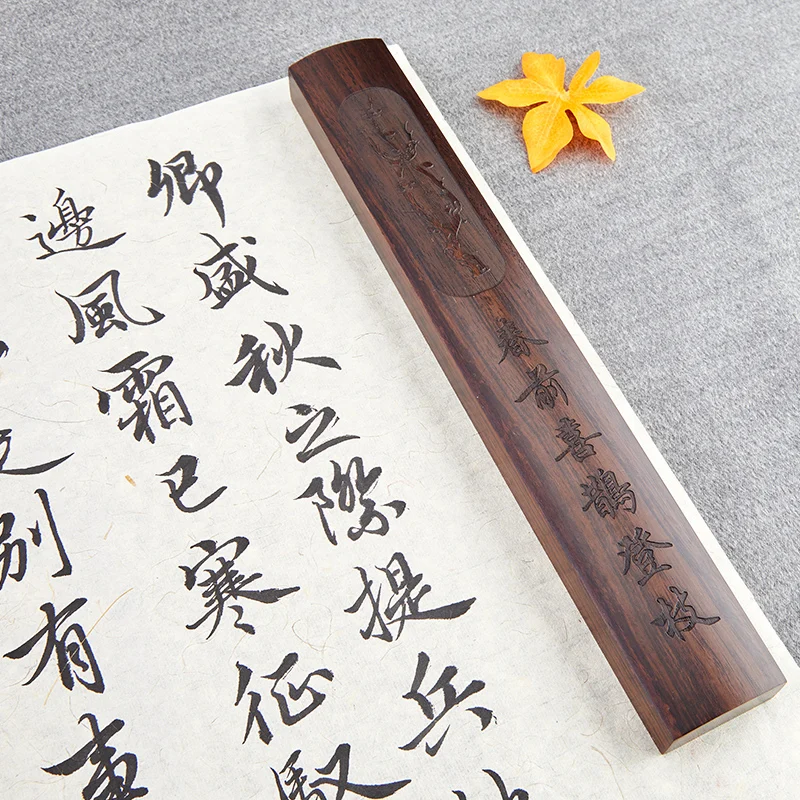 卿盛秋之際提兵
邊風霜已寒征馭
別有事
春前喜鵲登枝